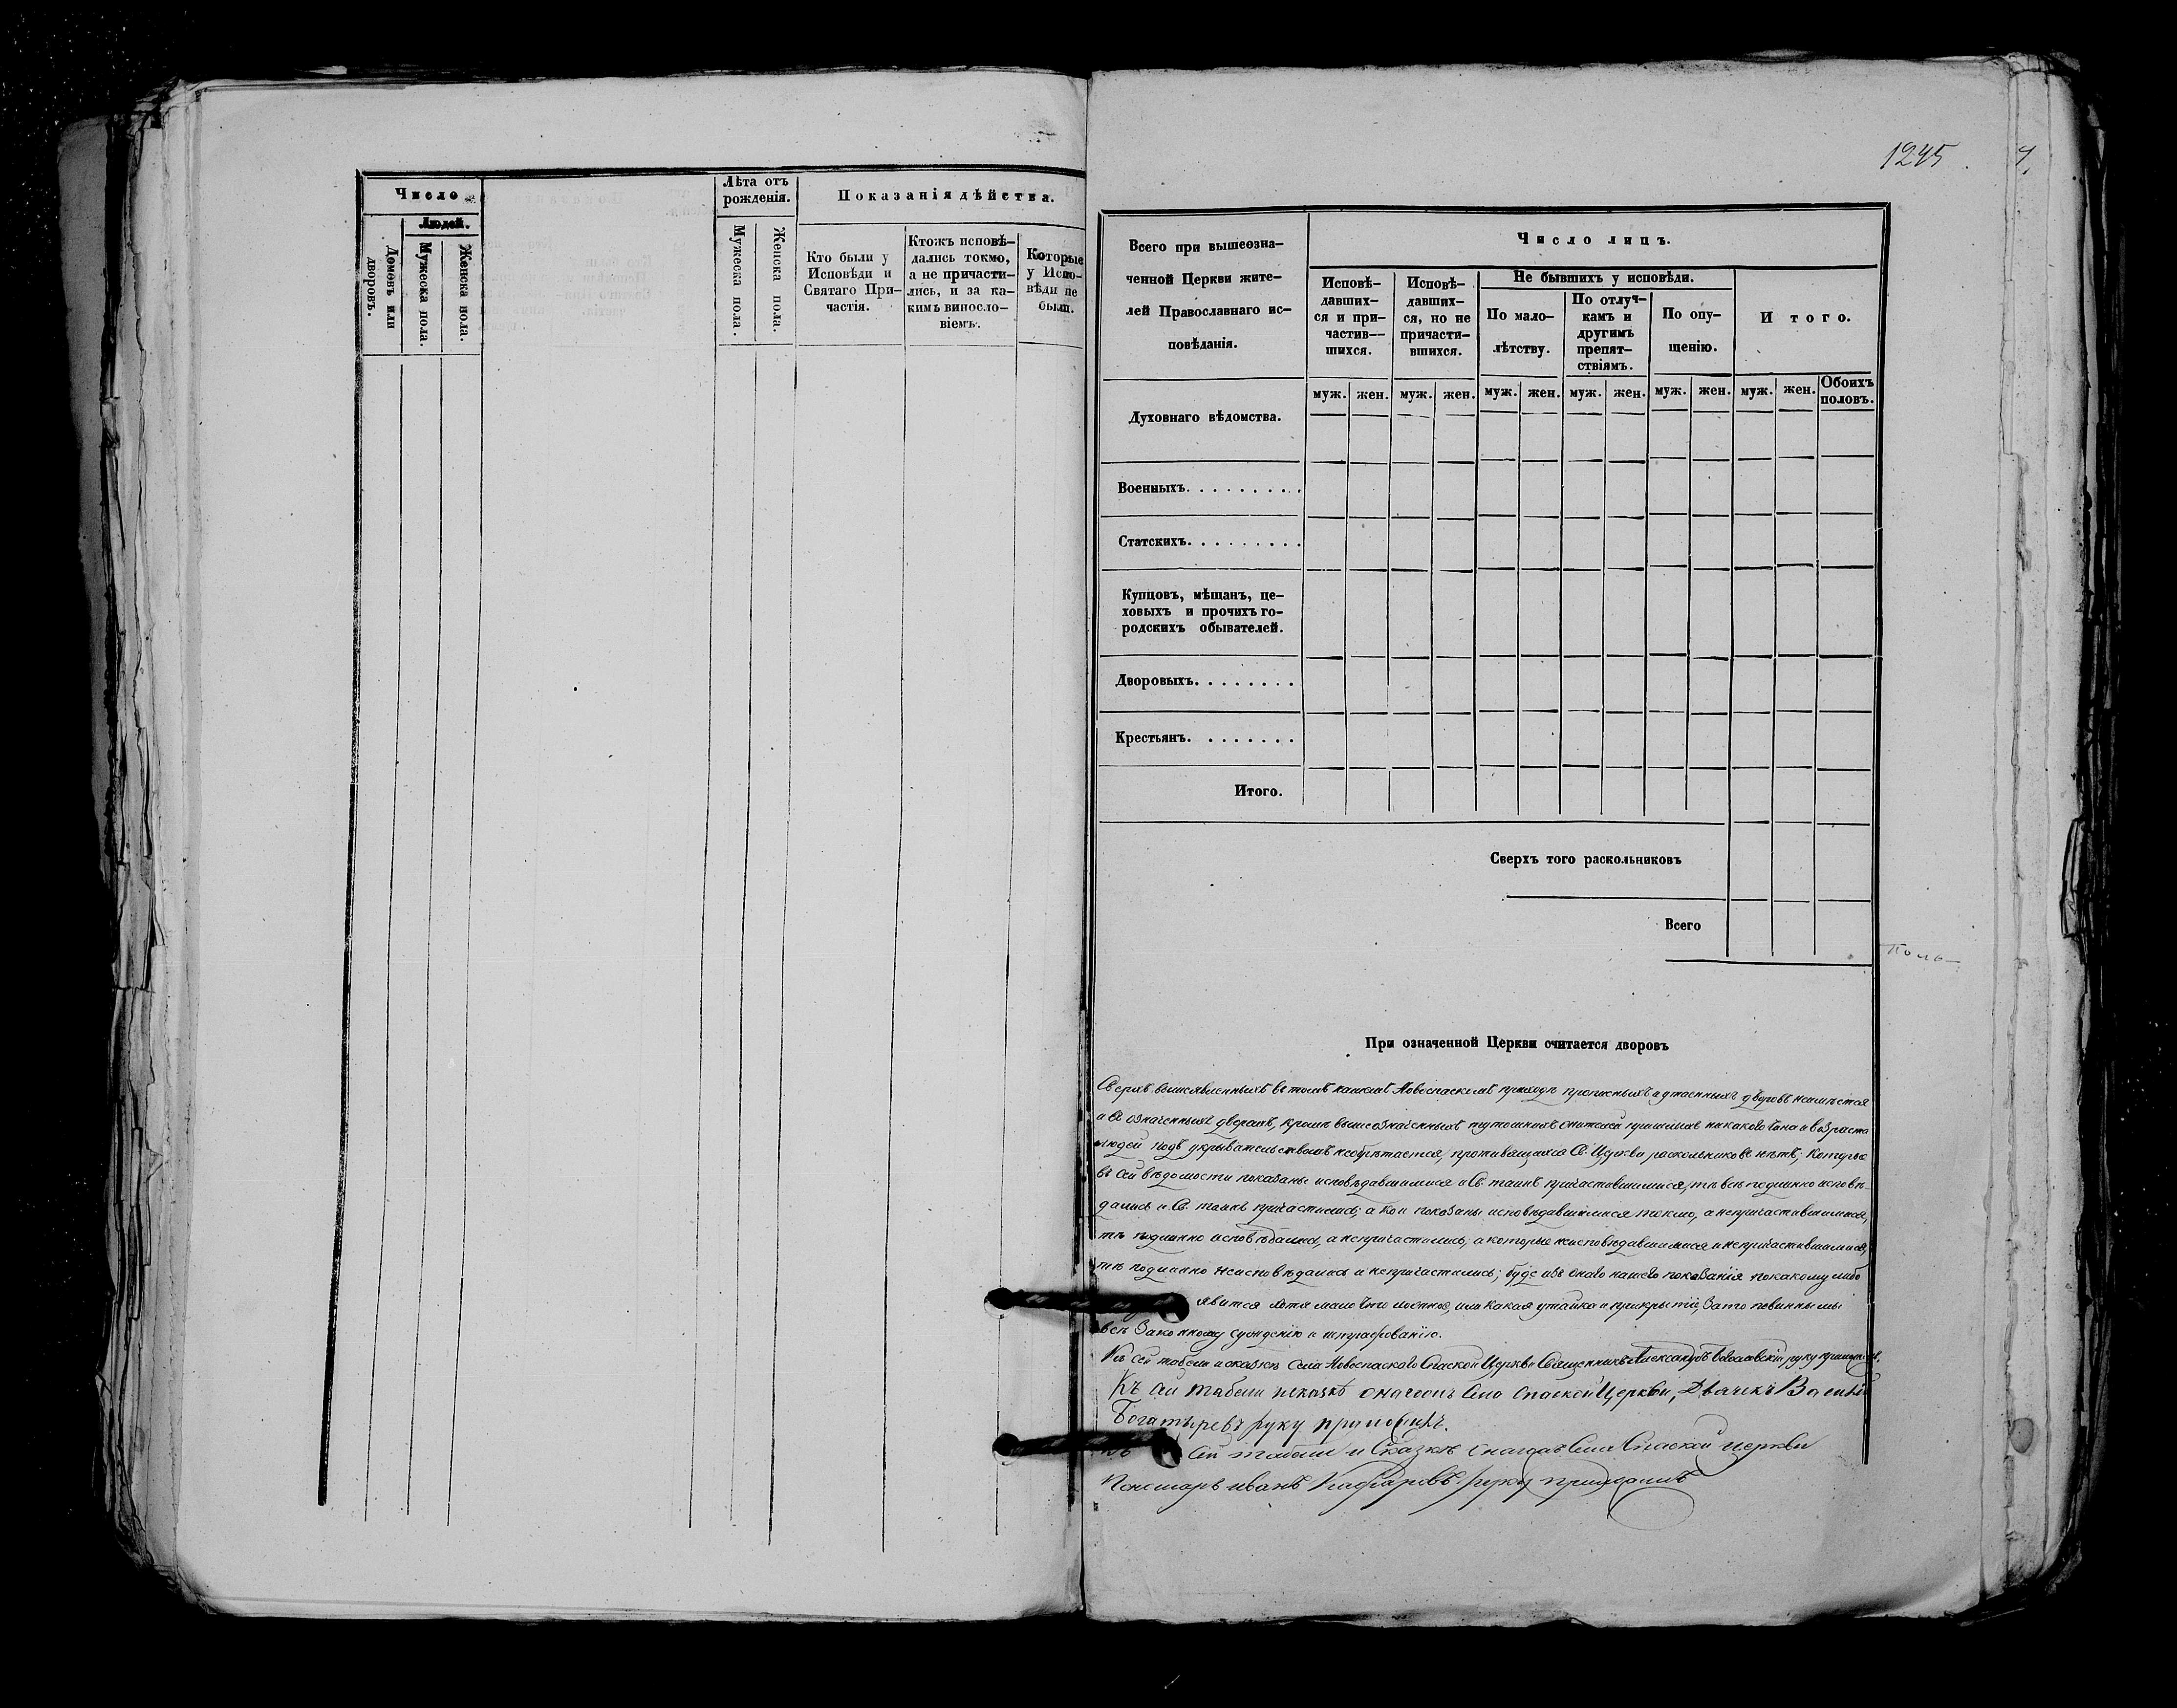 Число
Людей.
Домовъ или дворовъ.
Мужеска пола.
Женска пола.
Лѣта отъ
рожденія.
Мужеска пола.
Женска пола.
Показанія дѣйства.
Кто были у
Исповѣди и
Святаго При-
частія.
Ктожъ исповѣ-
дались токмо,
а не причасти-
лись, и за ка-
кимъ винословіемъ.
Которые
у Испо-
вѣди не
были.
1245
Всего при вышеозна-
ченной Церкви жите-
лей Православнаго ис-
повѣданія.
Число лицъ.
Исповѣ-
давших-
ся и при-
частив-
шихся.
Исповѣ-
давших-
ся, но не
причасти-
вшихся.
Не бывшихъ у исповѣди.
По мало-
лѣтству.
По отлуч-
камъ и
другимъ
препят-
ствіямъ.
По опу-
щенію.
Итого.
муж. жен. муж. жен. муж. жен. муж. жен. муж. жен. муж. жен. Обоихъ половъ.
Духовнаго вѣдомства.
Военныхъ.
Статскихъ.
Купцовъ, мѣщанъ, це-
ховыхъ и прочихъ го-
родскихъ обывателей.
Дворовыхъ.
Крестьянъ.
Итого.
Сверхъ того раскольниковъ
Всего
При означенной Церкви считается дворовъ
Сверхъ вышеявленныхъ въ томъ нашемъ Новоспаскомъ приходѣ прописныхъ и утаенныхъ дворовъ неимѣется
и въ означенныхъ дворахъ, кромѣ вышеозначенныхъ никакого чина и возраста
людей подъ укрывательствомъ необрѣтается, противящихся Св. Церкви раскольниковъ нѣтъ; которые
въ сей вѣдомости показаны исповѣдавшимися и Св. таинъ причастившимися, тѣ всѣ подлинно исповѣ-
дались и Св. таинъ причастились; а кои показаны исповѣдавшимися токмо, а непричастившимися,
тѣ подлинно исповѣдались, а непричастились; а которые неисповѣдавшимися и непричастившимися,
тѣ подлинно неисповѣдались и непричастились; буде изъ онаго нашего показанія покакому либо
явится хотя мало что ложное, или какая утайка и прикрытіе, за то повинны мы
всѣ законному сужденію и штрафованію.
Къ сей табели и сказкѣ села Новоспаскаго Спаской Церкви Священникъ Александръ руку приложилъ.
Къ сей табели и сказкѣ села Спаской Церкви, Дьячекъ Василій
Богатыревъ руку приложилъ.
Къ сей табели и сказкѣ села Спаской церкви
Пономарь Иванъ руку приложилъ